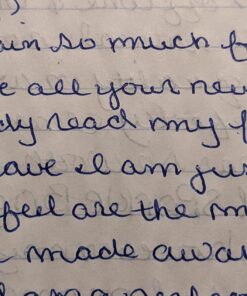 ain so much f
e all your new
dy read my f
ave I am jus
feel are the m
made awar